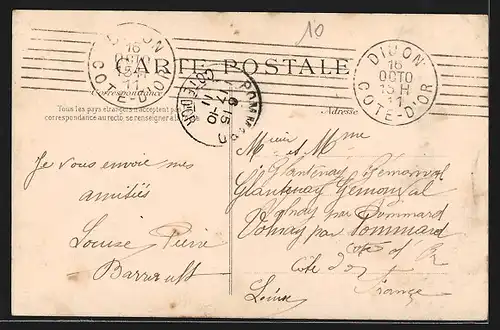 10
DIJON
16
OCTO
15 H
11
COTE-D'OR
CARTE POSTALE
DIJON
16
OCTO
15 H
11
COTE-D'OR
Correspondance
Adresse
Tous les pays étrangers n'acceptent pas
correspondance au recto, se renseigner
POMMARD
6-15
17-10
11
COTE D'OR
Je vous envoie mes
amitiés
Louise Pierre
M et Mme
Glantenay
Glantenay
Volnay par Pommard
Volnay par Pommard
Côte d'Or
Côte d'or
France